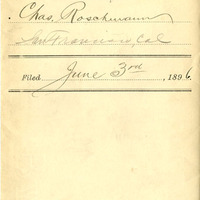 Chas, Roschmann
San Francisco, Cal
Filed June 3rd, 1896.